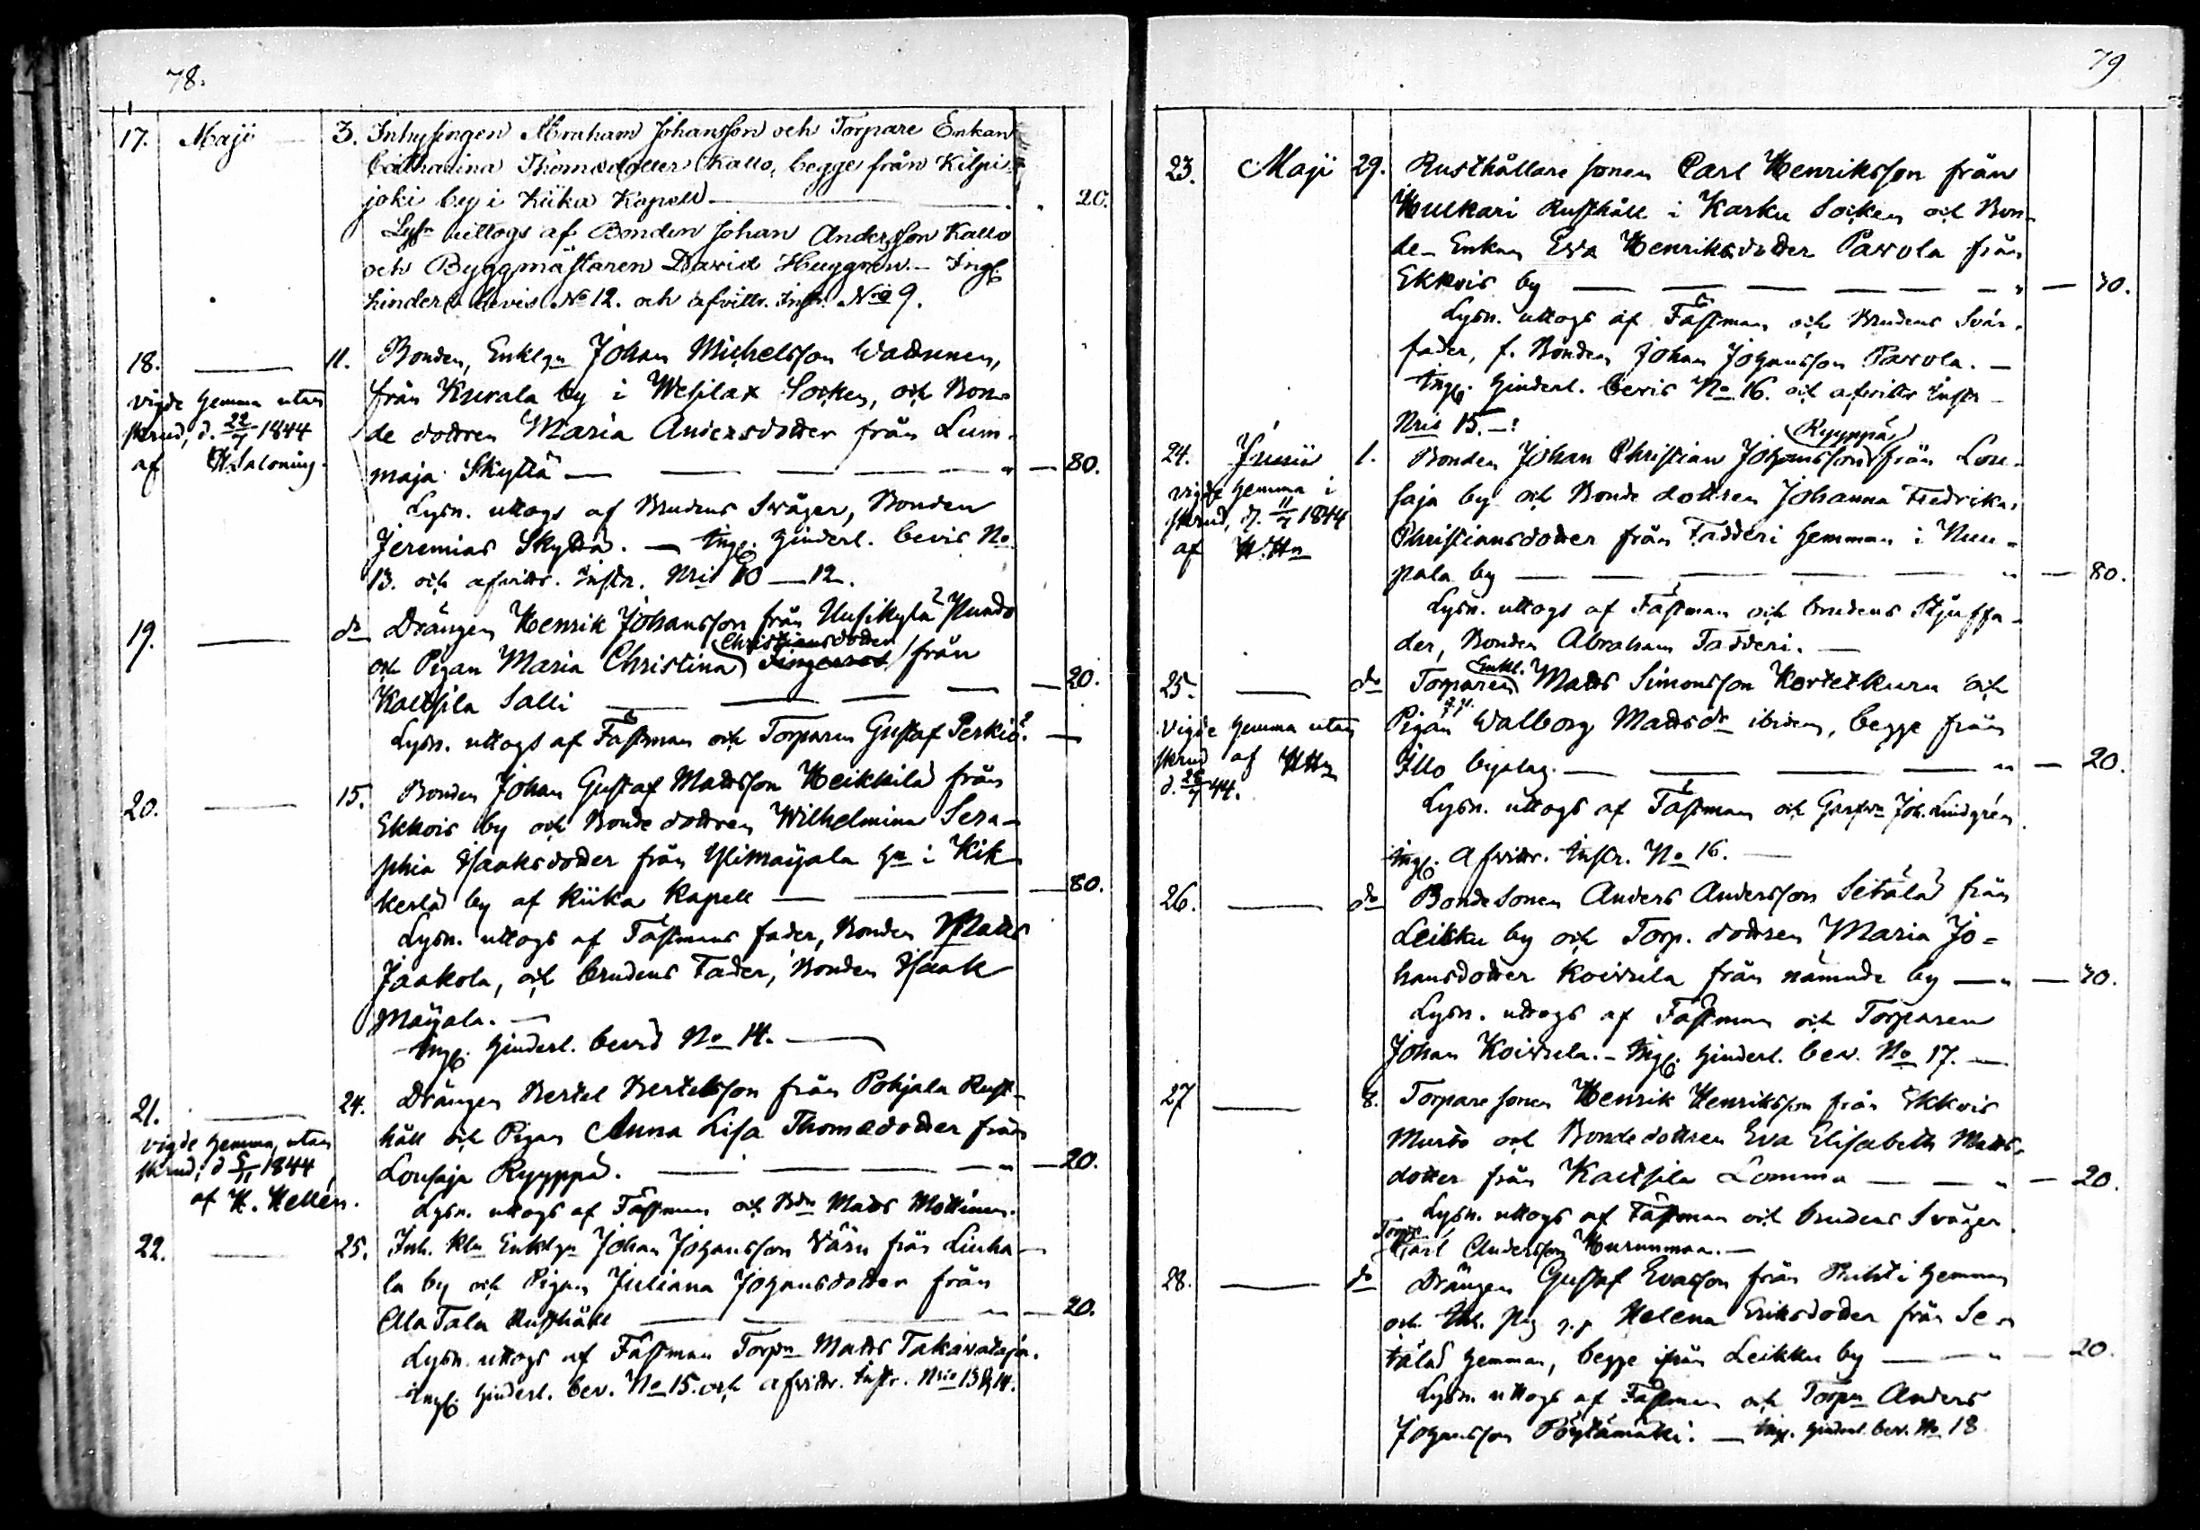 78.
17. Maji 3. Inhysingen Abraham Johansson och Torpare Enkan
Catharina Thomædotter Kallo, begge från Kilpis-
joki by i Kiika Kapell — 20.
Lysn uttogs af Bonden Johan Andersson Kallo
och Byggmästaren David Huggren. — Ingl.
hindersl. bevis No 12. och afvittr. Instr. No 9.
18. — 11. Bonden, Enklgn Johan Michelsson
vigde hemma utan
skrud, d. 22/7 1844
af Saloning.
från Kurala by i Wesilax Socken, och Bon-
de dottren Maria Andersdotter från Lum-
maja Skyttä — 80.
Lysn. uttogs af Brudens Svåger, Bonden
Jeremias Skyttä. — Ingl. hindersl. bevis No
13. och afvittr. Instr. Nris 10 — 12.
19. — do Drängen Henrik Johansson från Uusikylä
och Pigan Maria Christina Christiansdotter från
Kaltsila Salli — 20.
Lysn. uttogs af Fästman och Torparen Gustaf Perkiö. —
20. — 15. Bonden Johan Gustaf Mattsson Heikkilä från
Ekkois by och Bonde dottren Wilhelmina Sera-
phia Isaaksdotter från Ylimaijala hn i Kik-
kerlä by af Kiika Kapell — 80.
Lysn. uttogs af Fästmans fader, Bonden Matts
Jaakola, och brudens Fader, Bonden Isaak
Maijala. —
Ingl. hindersl. bevis No 14. —
21. — 24. Drängen Bertel Bertelsson från Pohjala Rust-
vigde hemma, utan
skrud, d 5/11 1844
af H. Hellén.
håll och Pigan Anna Lisa Thomædotter från
Lousaja Ryyppä. — 20.
Lysn. uttogs af Fästman och Bdn Matts Mottinen.
22. — 25. Inh. Enklgn Johan Johansson Värn från Liuha-
la by och Pigan Juliana Johansdotter från
Ala Tala Rusthåll — 20.
Lysn. uttogs af Fästman Torpn Matts Takavataja.
Ingl. hindersl. bev. No 15. och afvittr. Instr. Nris 13 & 14.
79
23. Maji 29. Rusthållare sonen Carl Henriksson från
Hulkari Rusthåll i Karku Socken och Bon-
de-Enkan Eva Henriksdotter Pavola från
Ekkois by — 30.
Lysn. uttogs af Fästman och Brudens Svär-
fader, f. Bonden Johan Johansson Pavola. —
Ingl. hindersl. bevis No 16. och afvittr Instr
Nris 15. —
24. Junii 1. Bonden Johan Christian Johansson Ryyppä från Lou-
vigde hemma i
skrud, d. 11/7 1844
af H. Hn
saja by och Bonde dottren Johanna Fredrika
Christiansdotter från Fadderi hemman i Nuu-
pala by — 80.
Lysn. uttogs af Fästman och brudens Stjuffa-
der, Bonden Abraham Fadderi. —
25. — do Torparen Enkl. Matts Simonsson Kortetkuru och
Vigde hemma utan
skrud af HHn
d. 26/7 44.
Pigan Walborg Mattsdr ibidem, begge från
Illo bylag. — 20.
Lysn. uttogs af Fästman och Garfvn Joh. Lindgrén.
Ingl. afvittr. Instr. No 16. —
26. — do Bondesonen Anders Andersson Setälä från
Leikku by och Torp. dottren Maria Jo-
hansdotter Koivula från nämnde by — 30.
Lysn. uttogs af Fästman och Torparen
Johan Koivula. — Ingl. hindersl. bev. No 17. —
27 — 8. Torpare sonen Henrik Henriksson från Ekkois
Murto och Bondedottren Eva Elisabeth Matts-
dotter från Kaltsila Lomma — 20.
Lysn. uttogs af Fästman och brudens Svåger
Torp. Carl Andersson Hurunmaa. —
28. — do Drängen Gustaf Evasson från Ruhti hemman
och Inh. pig Helena Eriksdotter från Se-
tälä hemman, begge ifrån Leikku by — 20.
Lysn. uttogs af Fästman och Torpn Anders
Johansson Pöytämäki. — Ingl. hindersl. bev. No 18